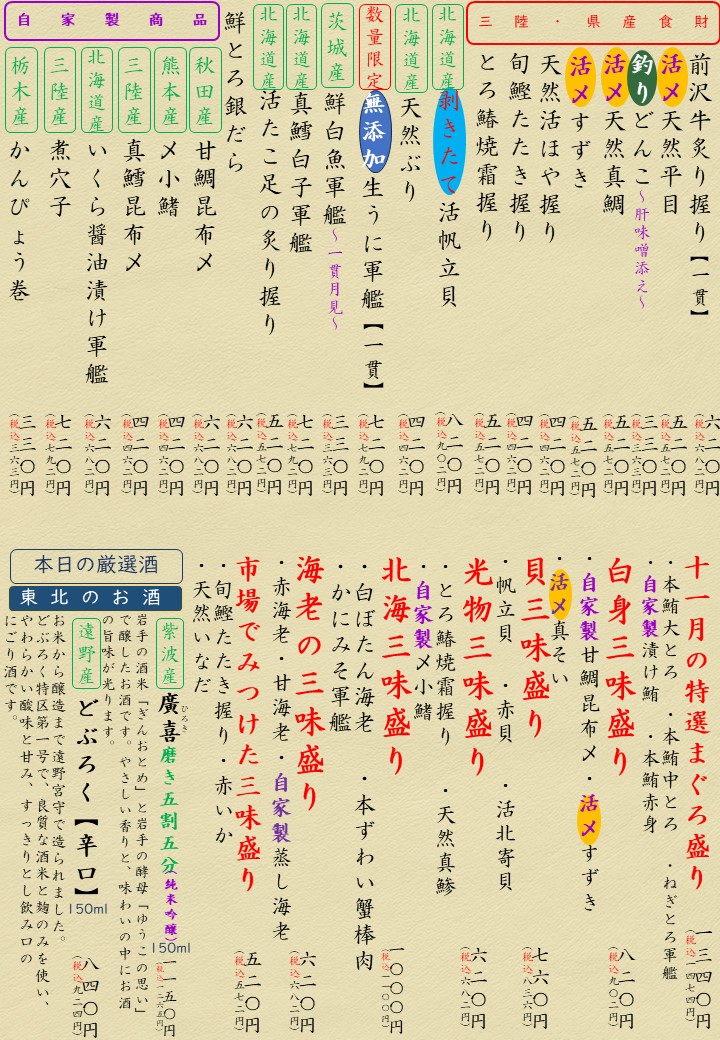 三陸・県産食財
前沢牛炙り握り【一貫】
六二〇円
(税込六八二円)
活〆天然平目
五二〇円
(税込五七二円)
釣りどんこ~肝味噌添え~
三三〇円
(税込三六三円)
活〆天然真鯛
五二〇円
(税込五七二円)
活〆すずき
五二〇円
(税込五七二円)
天然活ほや握り
四二〇円
(税込四六二円)
旬鰹たたき握り
四二〇円
(税込四六二円)
とろ鰆焼霜握り
五二〇円
(税込五七二円)
北海道産
剥きたて活帆立貝
八二〇円
(税込九〇二円)
北海道産
天然ぶり
四二〇円
(税込四六二円)
数量限定
無添加生うに軍艦【一貫】
七二〇円
(税込七九二円)
茨城産
鮮白魚軍艦~一貫月見~
三三〇円
(税込三六三円)
北海道産
真鱈白子軍艦
七二〇円
(税込七九二円)
北海道産
活たこ足の炙り握り
五二〇円
(税込五七二円)
鮮とろ銀だら
六二〇円
(税込六八二円)
自家製商品
秋田産
甘鯛昆布〆
六二〇円
(税込六八二円)
熊本産
〆小鰭
四二〇円
(税込四六二円)
三陸産
真鱈昆布〆
四二〇円
(税込四六二円)
北海道産
いくら醤油漬け軍艦
六二〇円
(税込六八二円)
三陸産
煮穴子
七二〇円
(税込七九二円)
栃木産
かんぴょう巻
三三〇円
(税込三六三円)
十一月の特選まぐろ盛り
・本鮪大とろ・本鮪中とろ・ねぎとろ軍艦
・自家製漬け鮪・本鮪赤身
一三四〇円
(税込一四七四円)
白身三味盛り
・自家製甘鯛昆布〆・活〆すずき
・活〆真そい
八二〇円
(税込九〇二円)
貝三味盛り
・帆立貝・赤貝・活北寄貝
七六〇円
(税込八三六円)
光物三味盛り
・とろ鰆焼霜握り・天然真鯵
・自家製〆小鰭
六二〇円
(税込六八二円)
北海三味盛り
・白ぼたん海老・本ずわい蟹棒肉
・かにみそ軍艦
一〇〇〇円
(税込一一〇〇円)
海老の三味盛り
・赤海老・甘海老・自家製蒸し海老
六二〇円
(税込六八二円)
市場でみつけた三味盛り
・旬鰹たたき握り・赤いか
・天然いなだ
五二〇円
(税込五七二円)
本日の厳選酒
東北のお酒
紫波産
廣喜磨き五割五分(純米吟醸)
ひろき
150ml
一一五〇円
(税込一二六五円)
岩手の酒米「ぎんおとめ」と岩手の酵母「ゆうこの思い」
で醸したお酒です。やさしい香りと、味わいの中にお酒
の旨味が光ります。
遠野産
どぶろく【辛口】
150ml
八四〇円
(税込九二四円)
お米から醸造まで遠野宮守で造られました。
どぶろく特区第一号で、良質な酒米と麹のみを使い、
やわらかい酸味と甘み、すっきりとし飲み口の
にごり酒です。